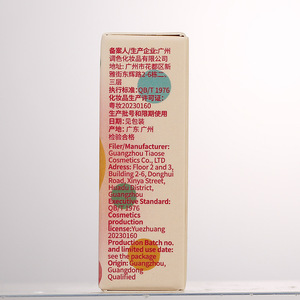 备案人/生产企业:广州
调色化妆品有限公司
地址: 广州市花都区新
雅街东辉路2-6栋二、
三层
执行标准: QB/T 1976
化妆品生产许可证:
粤妆20230160
生产批号和限期使用
日期:见包装
产地: 广东 广州
检验合格
Filer/Manufacturer:
Guangzhou Tiaose
Cosmetics Co., LTD
Adress: Floor 2 and 3,
Building 2-6, Donghui
Road, Xinya Street,
Huadu District,
Guangzhou
Executive Standard:
QB/T 1976
Cosmetics
production
license:Yuezhuang
20230160
Production Batch no.
and limited use date:
see the package
Origin: Guangzhou,
Guangdong
Qualified